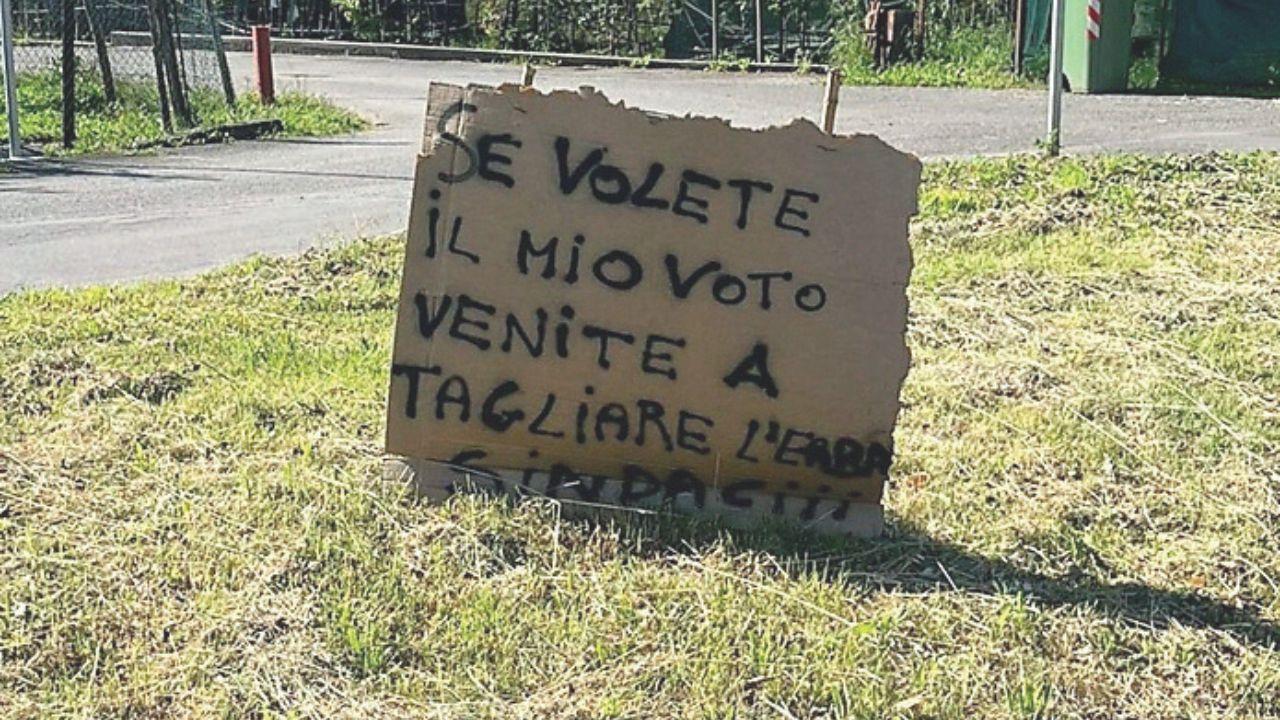 SE VOLETE
iL MiO VOTO
VENiTE A
TAGLiARE L'ERBA
SiNDACiii